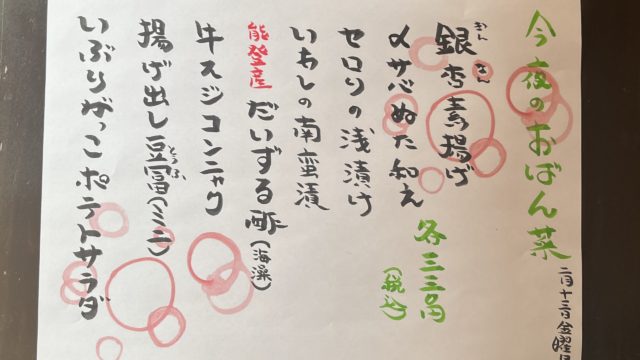 二月十三日金曜日
今夜のおばん菜
銀杏素揚げ
〆サバぬた和え
各三三〇円
(税込)
セロリの浅漬け
いわしの南蛮漬
能登産だいずる酢(海藻)
牛スジコンニャク
揚げ出し豆冨(ミニ)
とうふ
いぶりがっこポテトサラダ